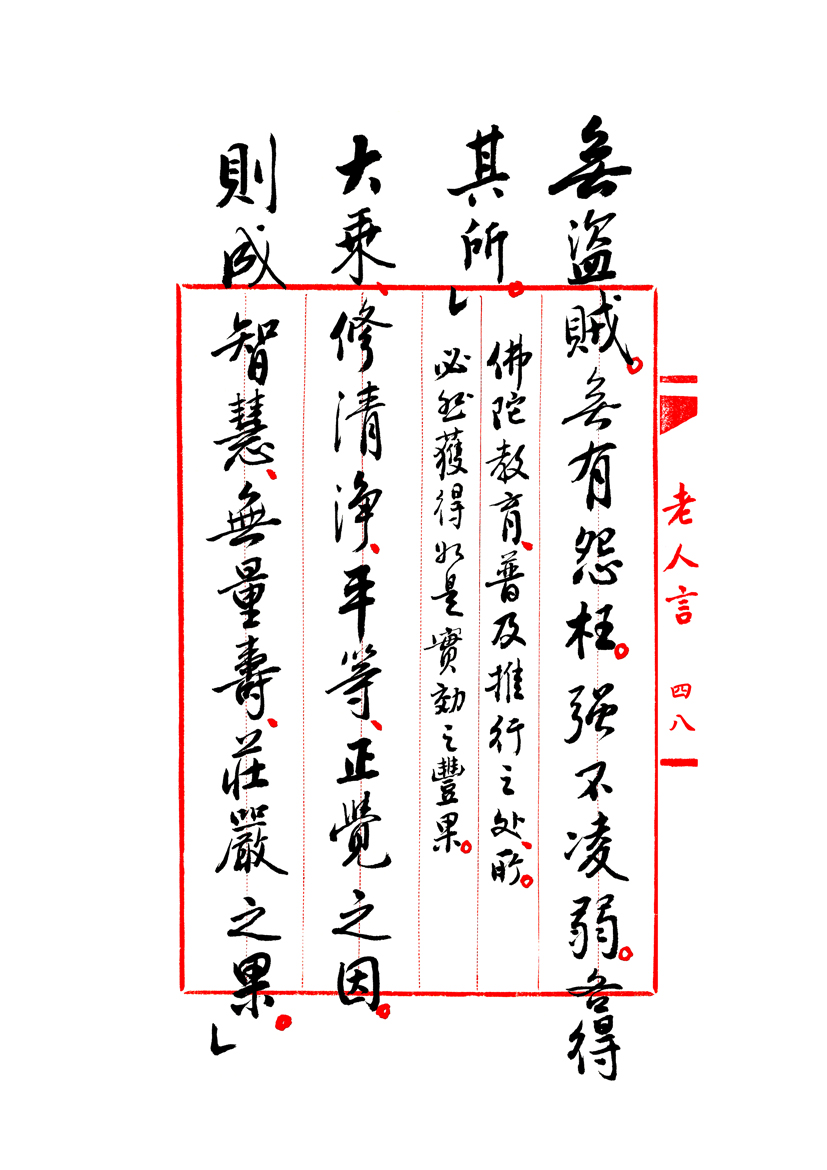 無盜賊。無有怨枉。强不凌弱。各得
其所。」
佛陀教育、普及推行之处、所。
必然獲得如是實効之豐果。
大乘、修清淨、平等、正覺之因。
則成智慧、無量壽、莊嚴之果。」
老人言 四八